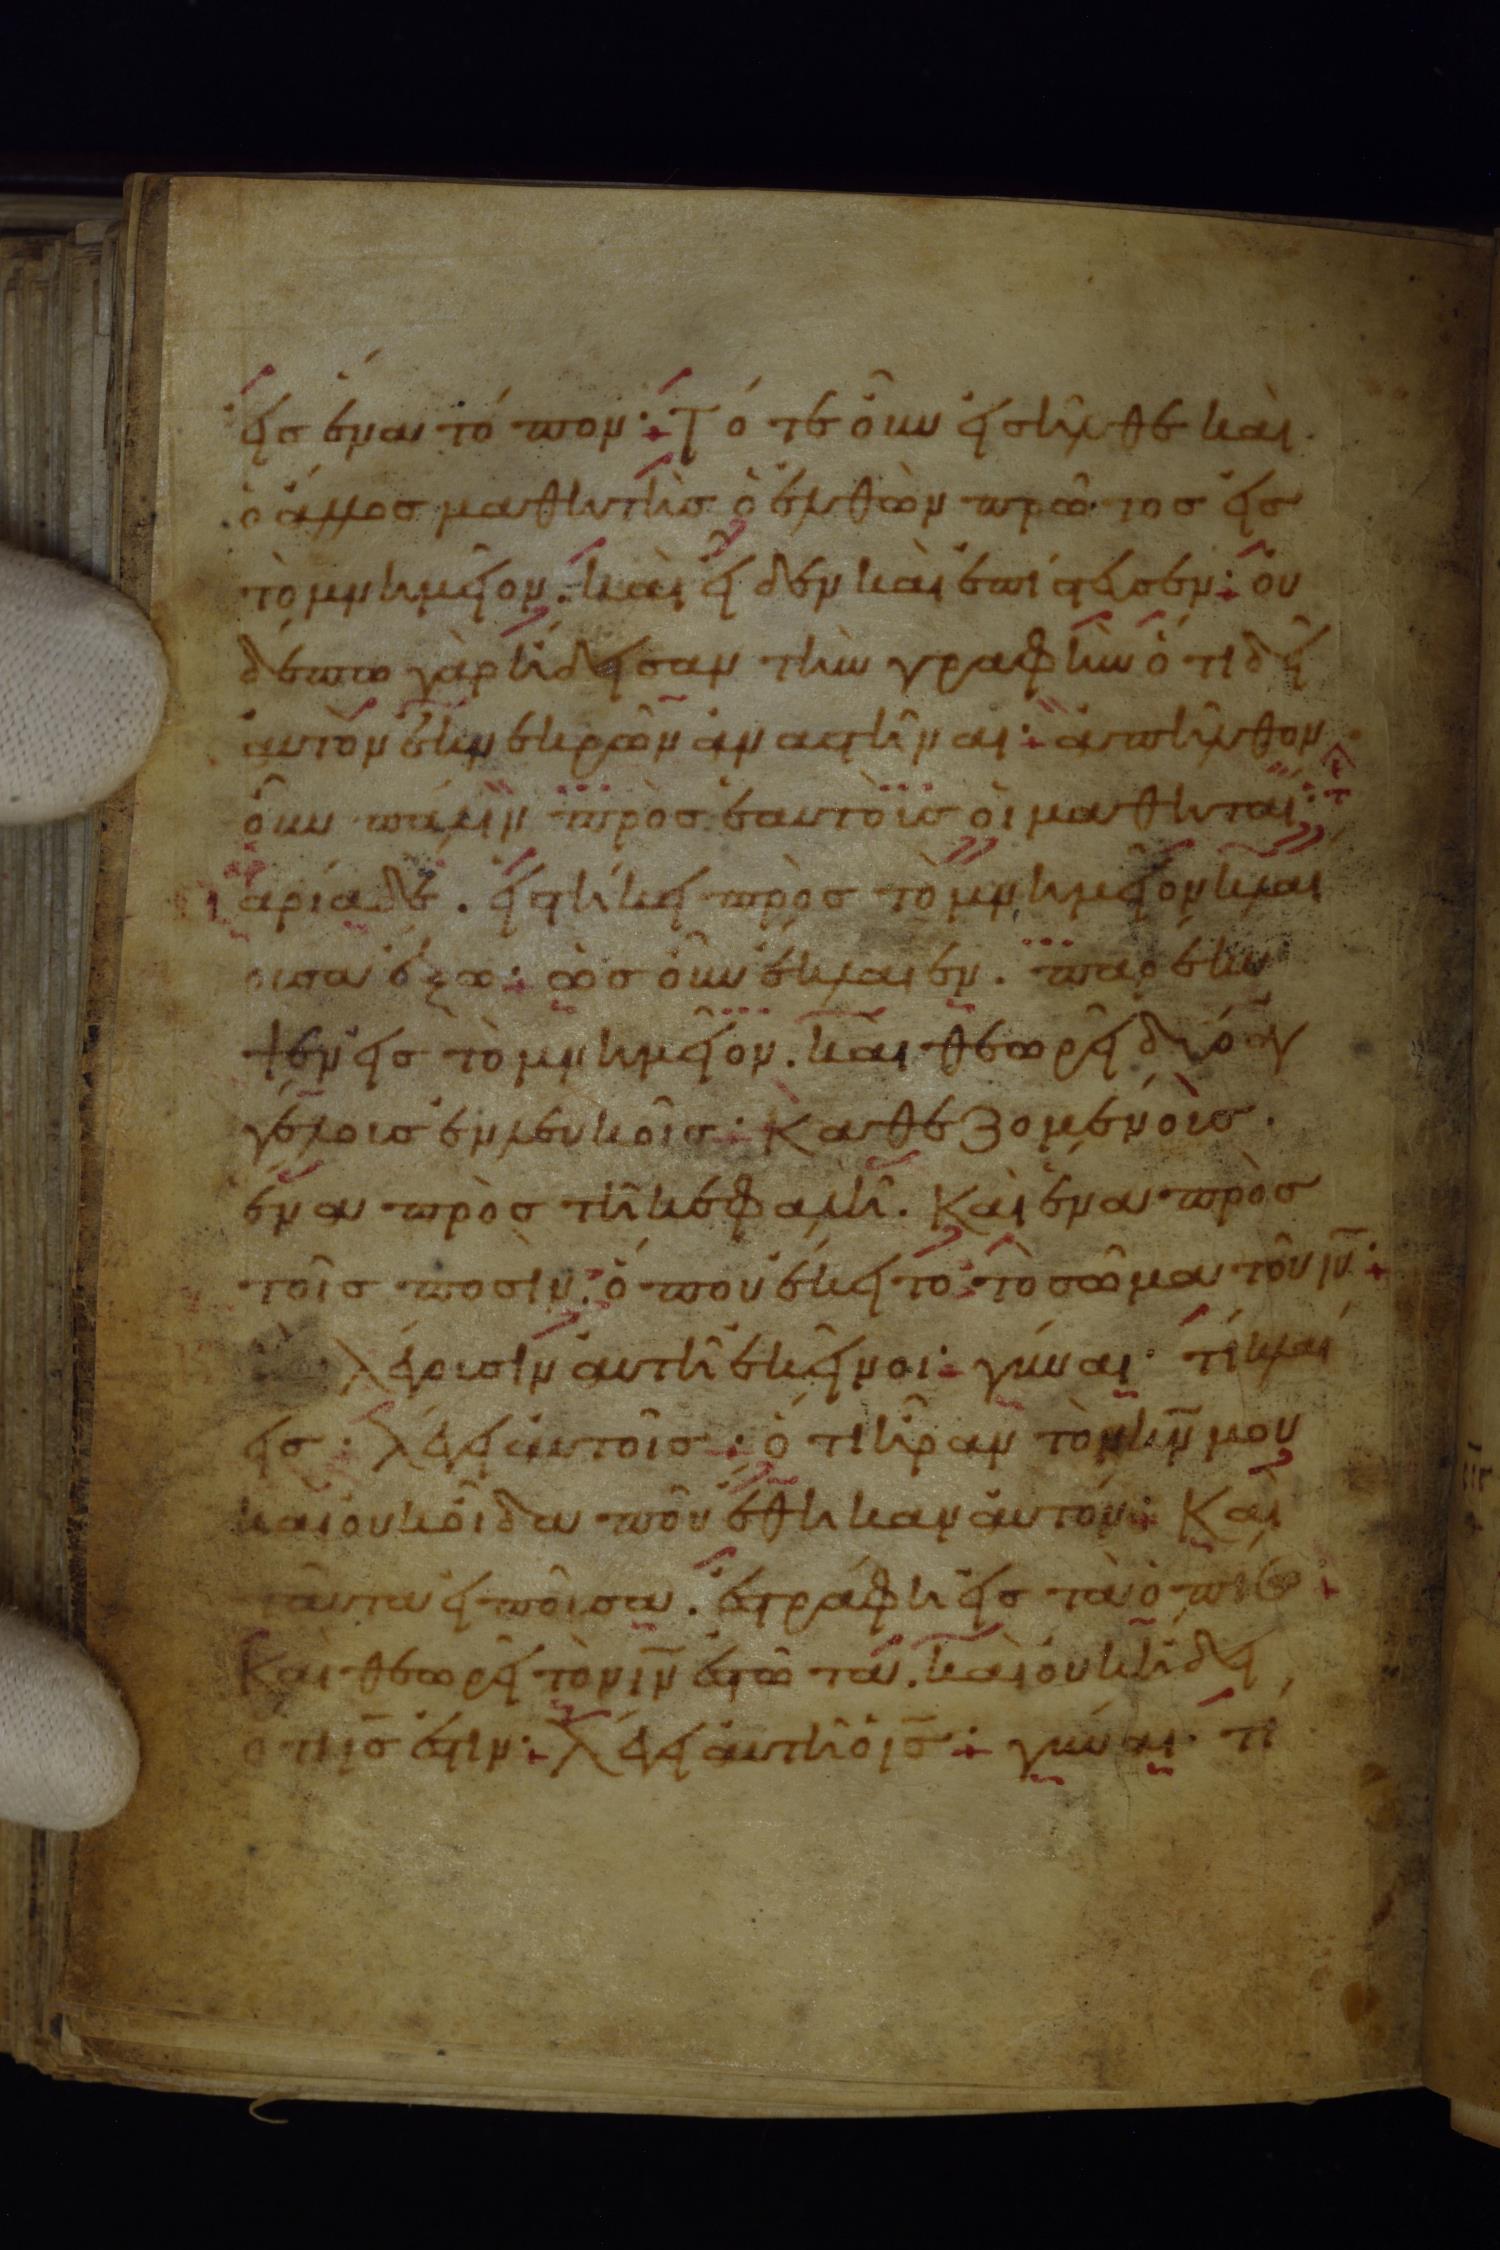 εἰς ἕνα τόπον· Τότε οὖν εἰσῆλθε καὶ
ὁ ἄλλος μαθητὴς ὁ ἐλθὼν πρῶτος εἰς
τὸ μνημεῖον. καὶ εἶδεν καὶ ἐπίστευσεν· οὐ
δέπω γὰρ ᾔδεισαν τὴν γραφὴν ὅτι δεῖ
αὐτὸν ἐκ νεκρῶν ἀναστῆναι· ἀπῆλθον
οὖν πάλιν πρὸς ἑαυτοὺς οἱ μαθηταί·
αρία δὲ. εἱστήκει πρὸς τὸ μνημεῖον κλαί
ουσα ἔξω· ὡς οὖν ἔκλαιεν. παρέκυ
ψεν εἰς τὸ μνημεῖον. καὶ θεωρεῖ δύο ἀγ
γέλους ἐν λευκοῖς· Καθεζομένους.
ἕνα πρὸς τῇ κεφαλῇ. Καὶ ἕνα πρὸς
τοῖς ποσίν. ὅπου ἔκειτο τὸ σῶμα τοῦ ιυ·
λέγουσιν αὐτῇ ἐκεῖνοι· γύναι· τί κλαί
εις· λέγει αὐτοῖς· ὅτι ἦραν τὸν κν μου
καὶ οὐκ οἶδα ποῦ ἔθηκαν αὐτόν· Καὶ
ταῦτα εἰποῦσα. ἐστράφη εἰς τὰ ὀπίσω
Καὶ θεωρεῖ τὸν ιν ἑστῶτα. καὶ οὐκ ᾔδει
ὅτι ις ἐστιν· λέγει αὐτῇ ὁ ις· γύναι· τί